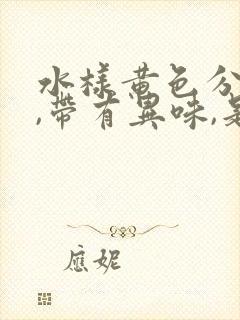 水樣黃色分
,帶有異味,是
應妮